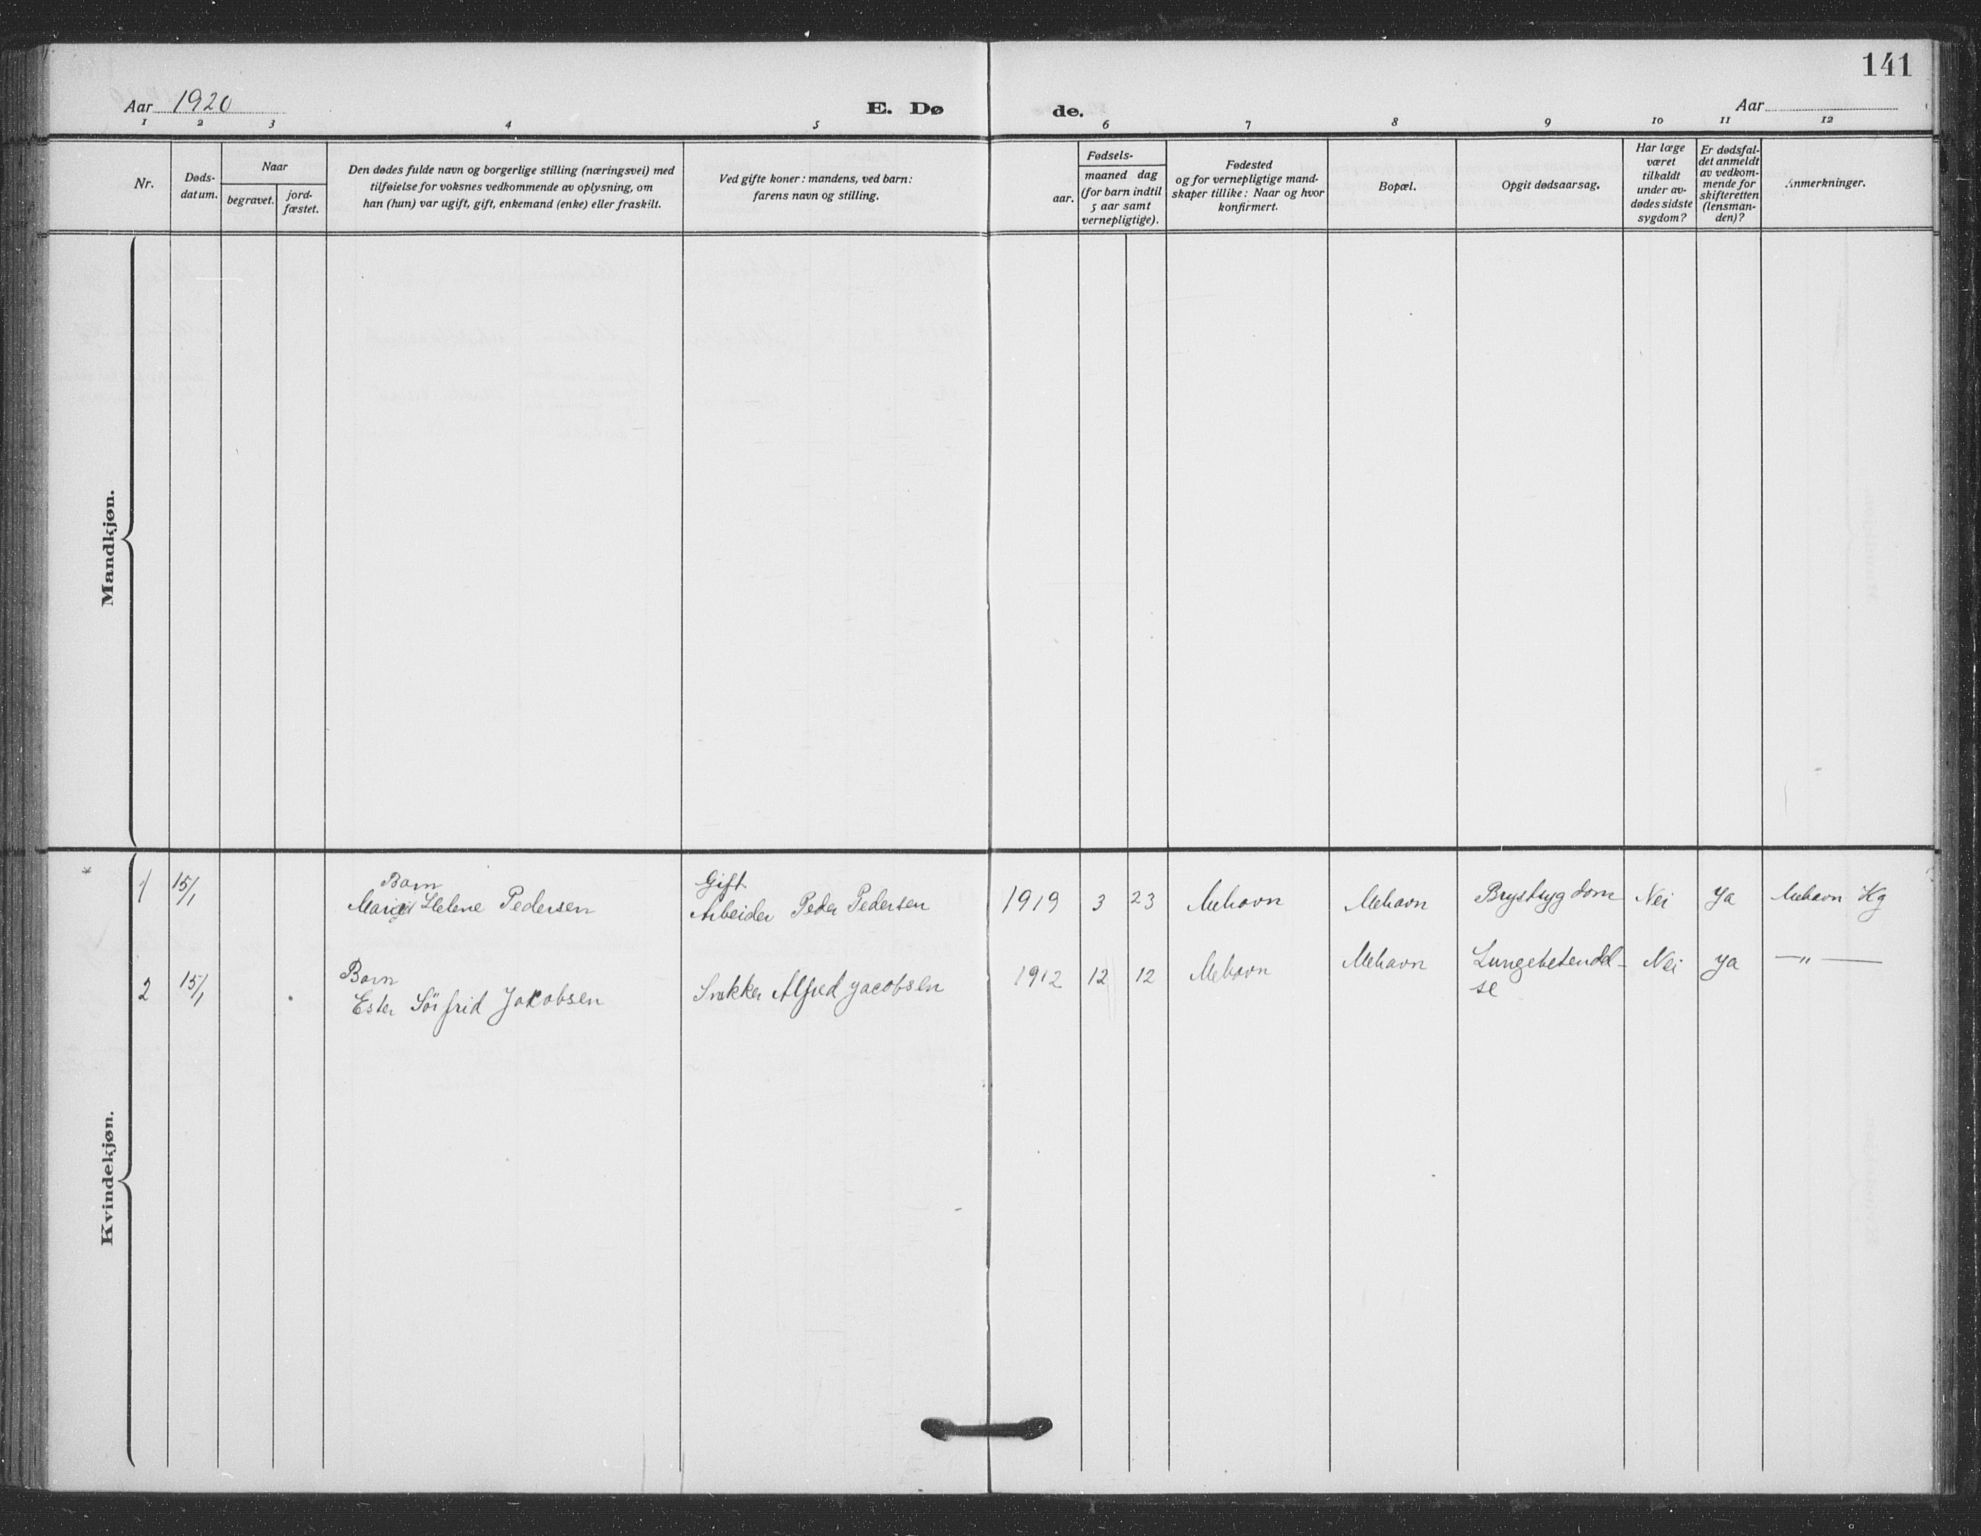 141
Aar 1920
E. Dø
de.
Aar
1 2 3 4 5 6 7 8 9 10 11 12
Nr.
Døds-
datum.
Naar
begravet.
jord-
fæstet.
Den dødes fulde navn og borgerlige stilling (næringsvei) med
tilføielse for voksnes vedkommende av oplysning, om
han (hun) var ugift, gift, enkemand (enke) eller fraskilt.
Ved gifte koner: mandens, ved barn:
farens navn og stilling.
aar.
Fødsels-
maaned dag
(for barn indtil
5 aar samt
vernepligtige).
Fødested
og for vernepligtige mand-
skaper tillike: Naar og hvor
konfirmert.
Bopæl.
Opgit dødsaarsag.
Har læge
været
tilkaldt
under av-
dødes sidste
sygdom?
Er dødsfal-
det anmeldt
av vedkom-
mende for
skifteretten
(lensman-
den)?
Anmerkninger.
Mandkjøn.
Kvindekjøn.
Barn
Gift
1 15/1 Helene Pedersen Arbeider Peder Pedersen 1919 3 23 Mehavn Mehavn Brystsygdom Nei Ja Mehavn Kg
Barn
2 15/1 Ester Sørfrid Jakobsen Snekker Alfred Jacobsen 1912 12 12 Mehavn Mehavn Lungebetendel- Nei Ja —„—
se